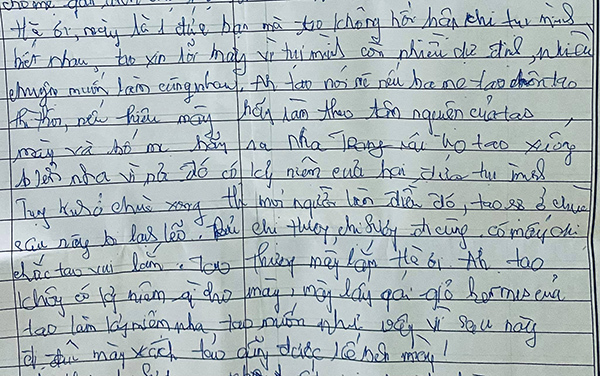 Hà ơi, mày là 1 đứa bạn mà tao không hối hận khi tụi mình
biết nhau, tao xin lỗi mày vì tụi mình còn nhiều dự định, nhiều
chuyện muốn làm cùng nhau. Ah tao nói mẹ nếu ba mẹ tao chôn tao
thì thôi, nếu thiêu mày hãy làm theo tâm nguyện của tao,
mày và bố mẹ hãy ra Nha Trang rải tro tao xuống
biển nha vì nơi đó có kỷ niệm của hai đứa tụi mình
Tụng kinh ở chùa xong thì mọi người làm điều đó, tao sợ ở chùa
sau này bị lạnh lẽo. chị thủy, chị, đi cùng, có mấy chị
chắc tao vui lắm. Tao thương mày lắm Hà ơi. Ah tao
không có kỷ niệm gì cho mày, mày lấy cái giỏ hermes của
tao làm kỷ niệm nha tao muốn như vậy vì sau này
đi đâu mày xách tao cũng được kề bên mày!